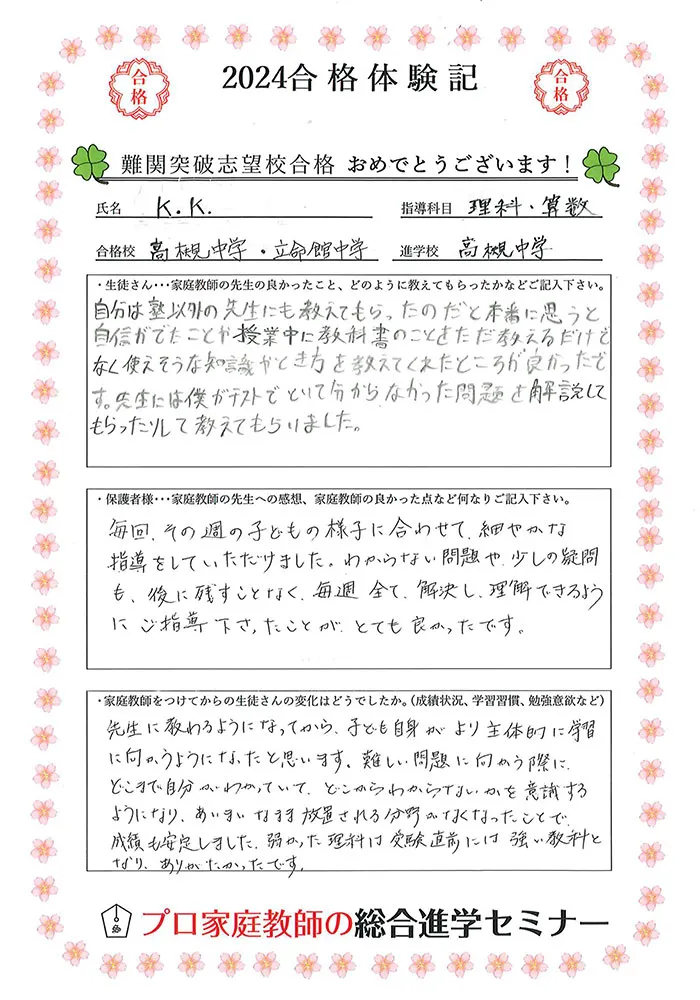 2024合格体験記
合格
合格
難関突破志望校合格 おめでとうございます！
氏名 K.K. 指導科目 理科・算数
合格校 高槻中学・立命館中学 進学校 高槻中学
・生徒さん・・・家庭教師の先生の良かったこと、どのように教えてもらったかなどご記入下さい。
自分は塾以外の先生にも教えてもらったのだと本番に思うと
自信がでたことが授業中に教科書のことをただ教えるだけで
なく使えそうな知識やとき方を教えてくれたところが良かったで
す。先生には僕がテストでといて分からなかった問題を解説して
もらったりして教えてもらいました。
・保護者様・・・家庭教師の先生への感想、家庭教師の良かった点など何なりご記入下さい。
毎回、その週の子どもの様子に合わせて、細やかな
指導をしていただけました。わからない問題や、少しの疑問
も、後に残すことなく、毎週 全て、解決し、理解できるよう
に ご指導 下さったことが、とても 良かったです。
・家庭教師をつけてからの生徒さんの変化はどうでしたか。（成績状況、学習習慣、勉強意欲など）
先生に教わるようになってから、子ども自身が より 主体的に学習
に向かうようになったと思います。難しい問題に向かう際に、
どこまで自分がわかっていて、どこからわからないかを意識する
ようになり、あいまいなまま放置される分野がなくなったことで、
成績も安定しました。弱かった理科は受験直前には 強い教科と
なり、ありがたかったです。
プロ家庭教師の総合進学セミナー